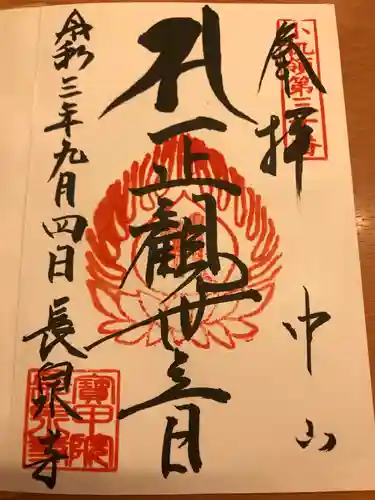 奉拝
中山
正観世音
令和三年九月四日
長泉寺
寶中院